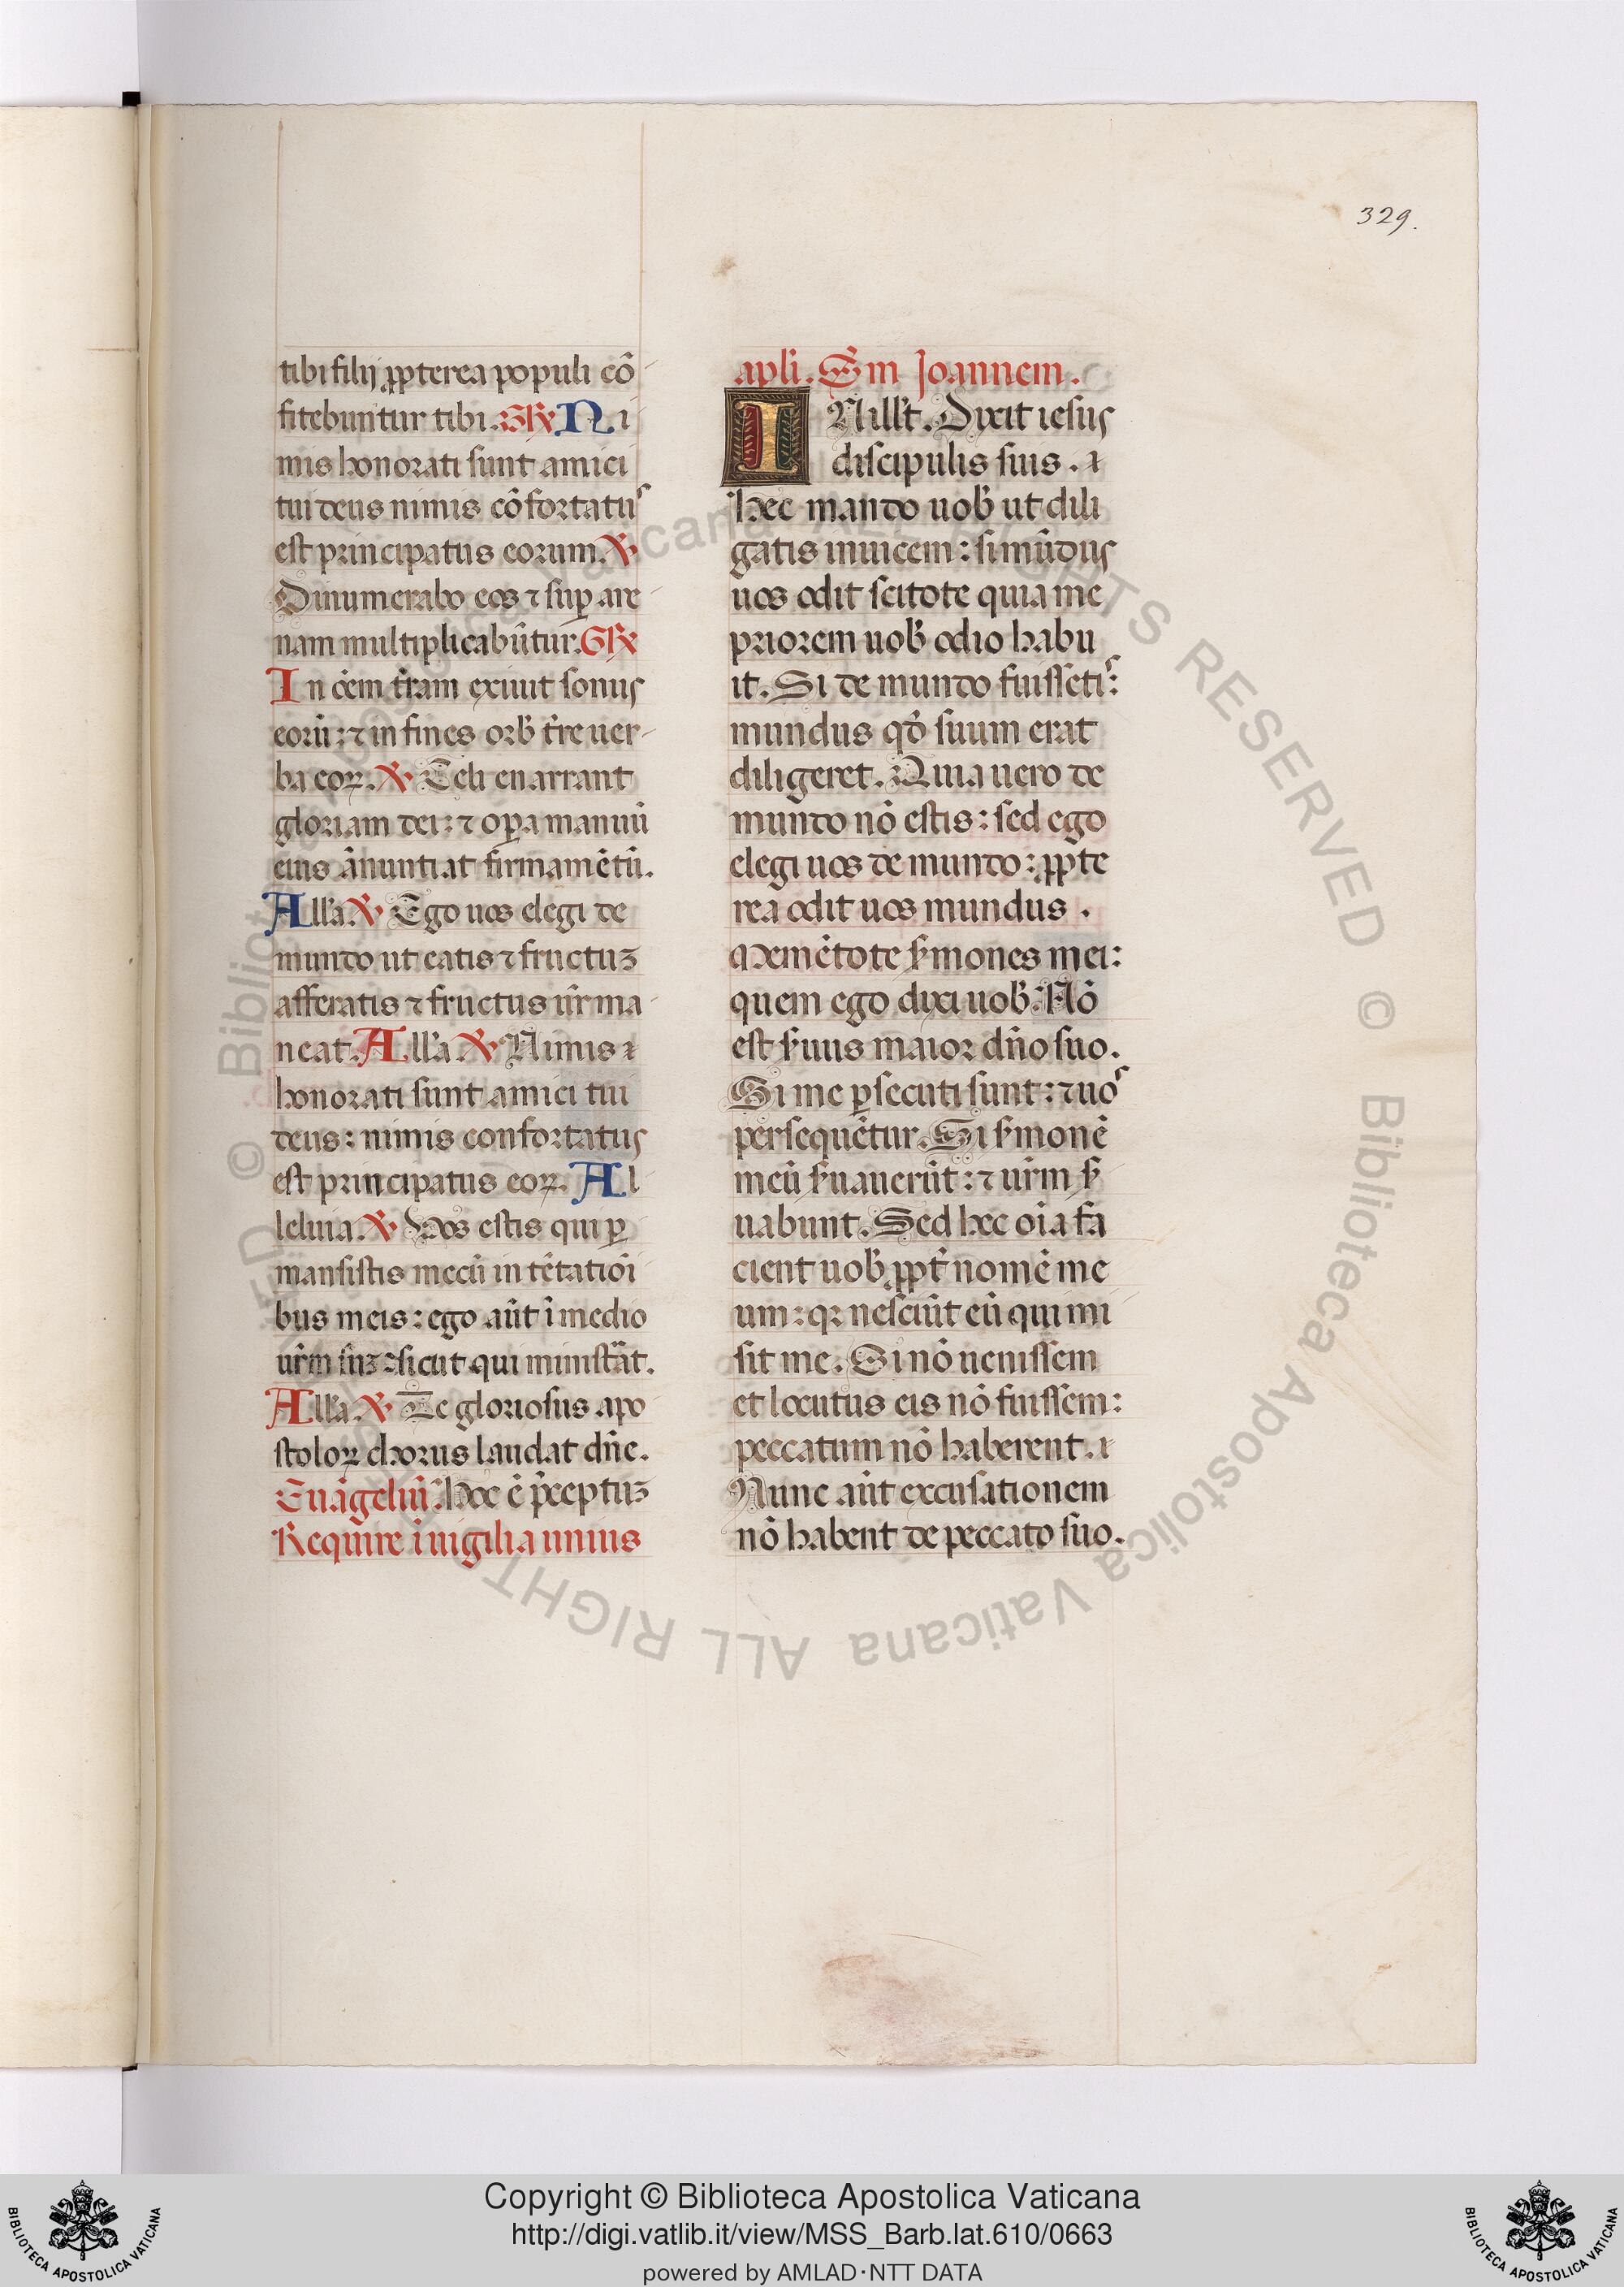 329.
tibi filij ꝓpterea populi cõ
fitebuntur tibi. GR Ni
mis honorati sunt amici
tui deus nimis cõfortatus
est principatus eorum. ℣
Dinumerabo eos ⁊ suꝑ are
nam multiplicabũtur. GR
In oẽm t̃ram exiuit sonus
eorũ: ⁊ in fines orb̃ t̃re uer
ba eoꝝ. ℣ Celi enarrant
gloriam dei: ⁊ oꝑa manuũ
eius ãnuntiat firmamẽtũ.
All'a ℣ Ego uos elegi de
mundo ut eatis ⁊ fructuꝫ
afferatis ⁊ fructus ur̃ ma
neat. All'a ℣ Nimis
honorati sunt amici tui
deus: nimis confortatus
est principatus eoꝝ. Al
leluia. ℣ Uos estis qui ꝑ
mansistis mecũ in tẽtatiõi
bus meis: ego aũt ĩ medio
ur̃m suꝫ sicut qui ministrãt.
All'a ℣ Te gloriosus apo
stoloꝝ chorus laudat dñe.
Euãgeliũ. Hoc ẽ p̃ceptuꝫ
Require ĩ uigilia unius
apl̃i. Sm Joannem.
IN ill't. Dixit iesus
discipulis suis.
Hec mando uob̃ ut dili
gatis inuicem: si mũdus
uos odit scitote quia me
priorem uob̃ odio habu
it. Si de mundo fuissetis:
mundus qd̃ suum erat
diligeret. Quia uero de
mundo nõ estis: sed ego
elegi uos de mundo: ꝓpte
rea odit uos mundus.
Memẽtote s̃mones mei:
quem ego dixi uob̃. Nõ
est s̃uus maior dño suo.
Si me ꝑsecuti sunt: ⁊ uos
persequẽtur. Si s̃monẽ
meũ s̃uauerũt: ⁊ ur̃m s̃
uabunt. Sed hec oĩa fa
cient uob̃ ꝓpt̃ nomẽ me
um: qꝛ nesciũt eũ qui mi
sit me. Si nõ uenissem
et locutus eis nõ fuissem:
peccatum nõ haberent.
Nunc aũt excusationem
nõ habent de peccato suo.
© Biblioteca Apostolica Vaticana ALL RIGHTS RESERVED © Biblioteca Apostolica Vaticana ALL RIGHTS RESERVED
Copyright © Biblioteca Apostolica Vaticana
http://digi.vatlib.it/view/MSS_Barb.lat.610/0663
powered by AMLAD·NTT DATA
BIBLIOTECA APOSTOLICA VATICANA
BIBLIOTECA APOSTOLICA VATICANA